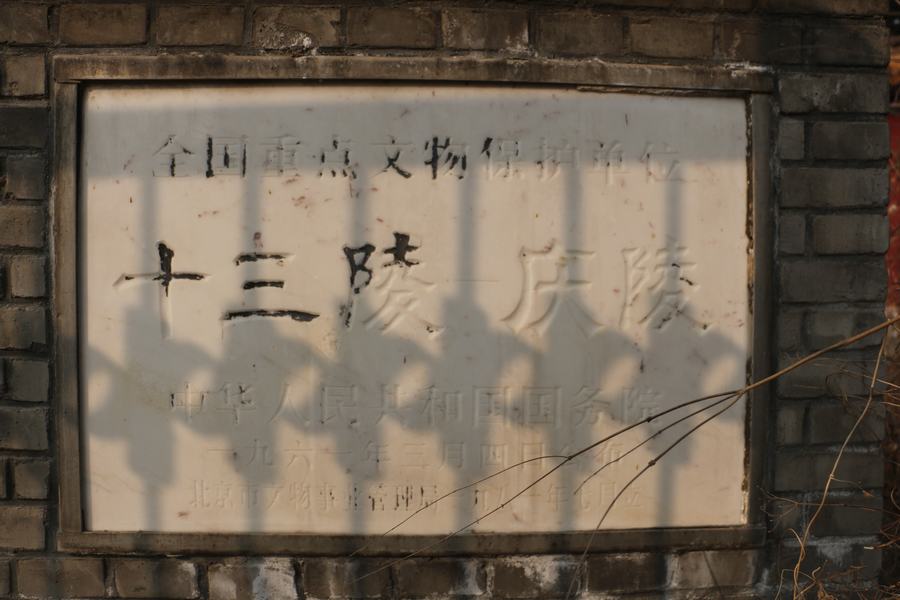 全国重点文物保护单位
十三陵—庆陵
中华人民共和国国务院
一九六一年三月四日公布
北京市文物事业管理局一九八一年七月立